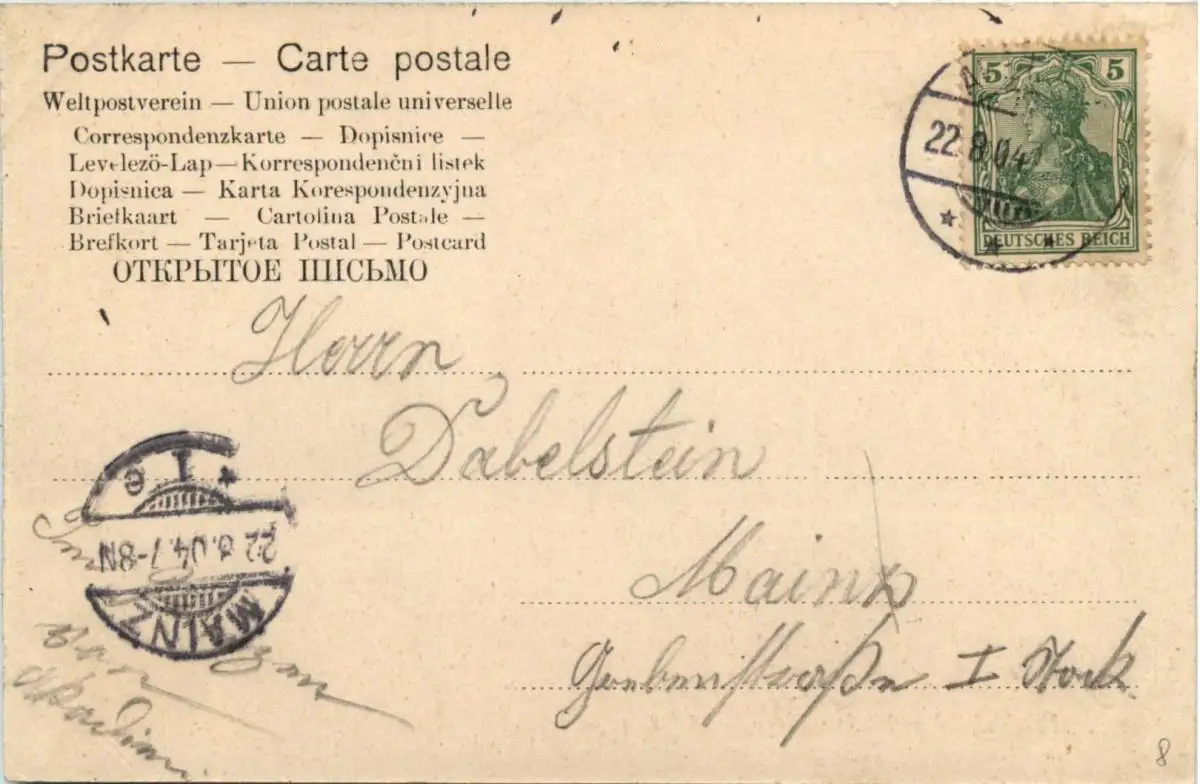 Postkarte — Carte postale
Weltpostverein — Union postale universelle
Correspondenzkarte — Dopisnice —
Levelezö-Lap — Korrespondenčni listek
Dopisnica — Karta Korespondenzyjna
Briefkaart — Cartolina Postale —
Brefkort — Tarjeta Postal — Postcard
ОТКРЫТОЕ ПИСЬМО
5 5
DEUTSCHES REICH
22.8.04
Herrn
Dabelstein
Mainz
I Stock
22.8.04.7-8N
MAINZ
8